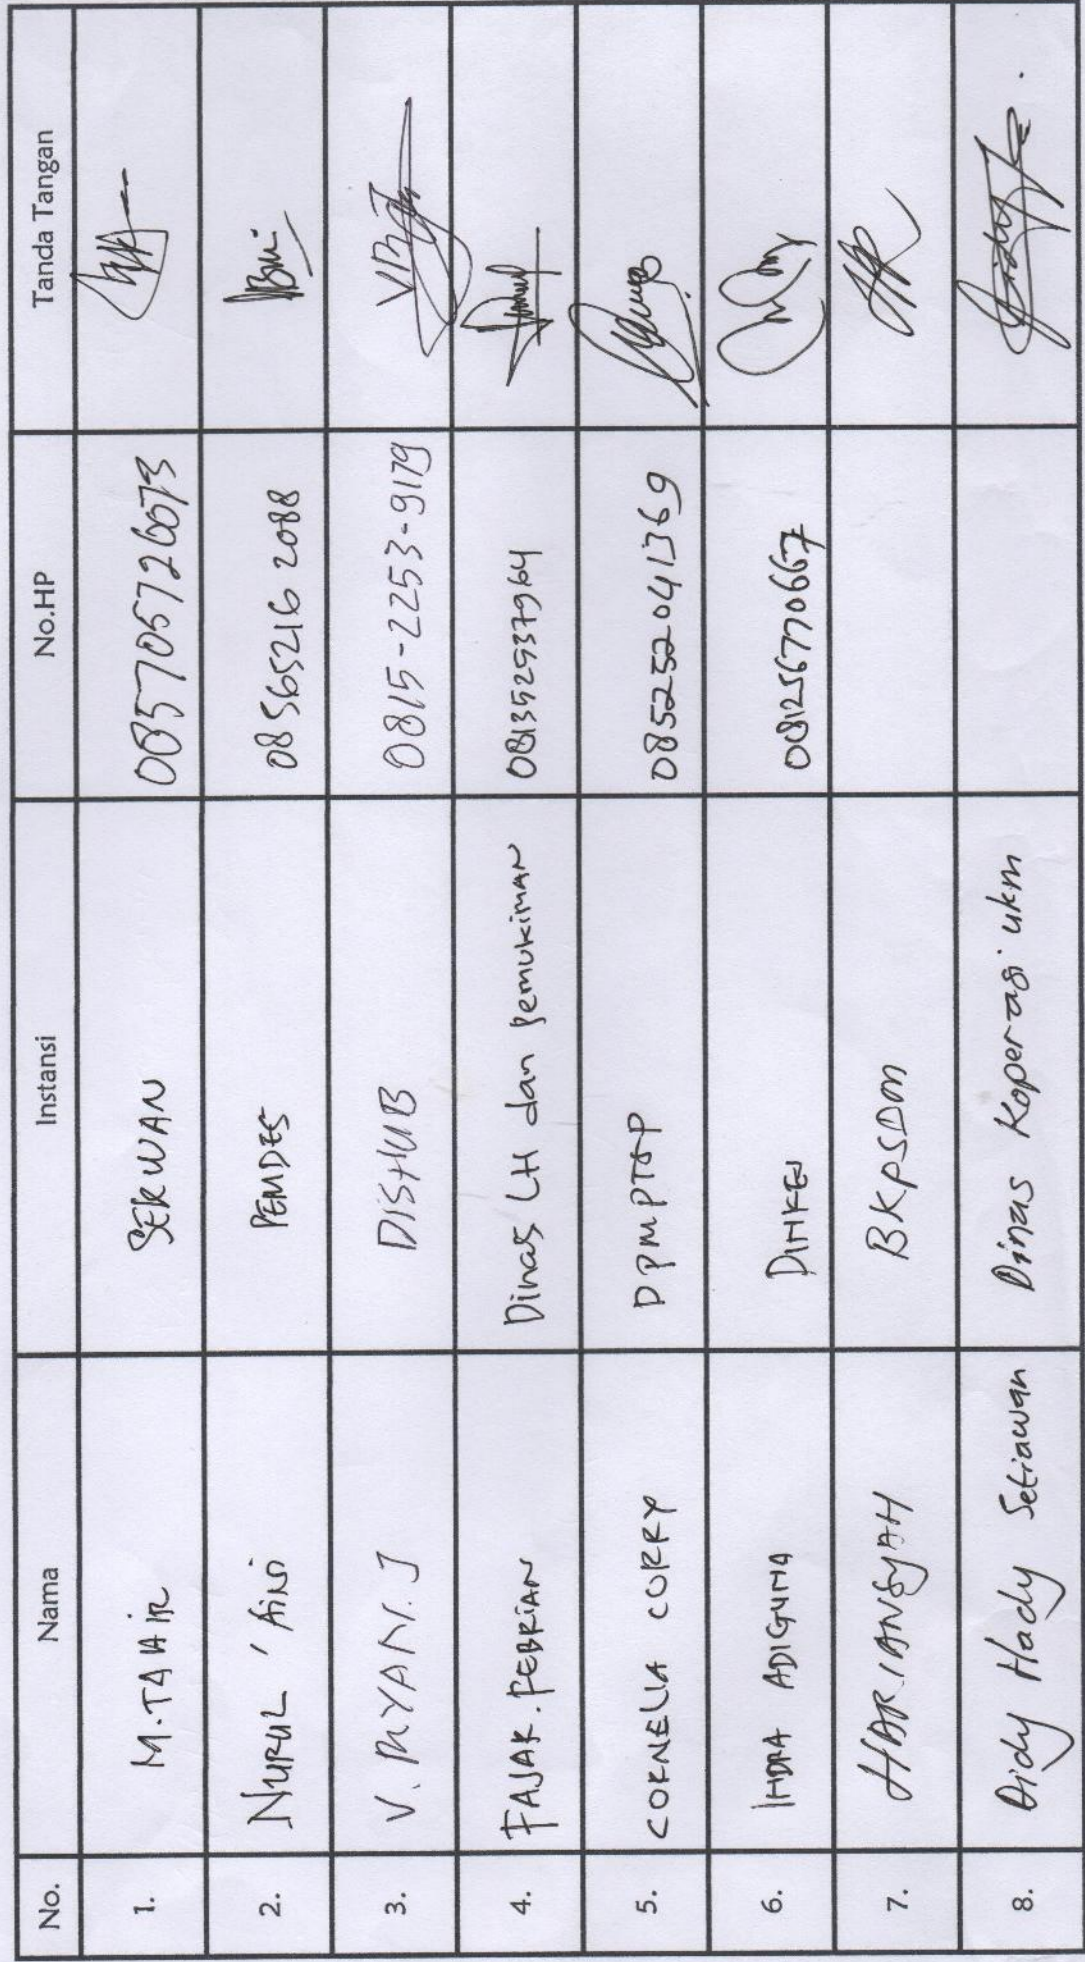 No. Nama Instansi No.HP Tanda Tangan
1. M.TAHIR SEKWAN 085705726073
2. NURUL 'AiNi PEMDES 08565216 2088
3. V. RYAN. J DISHUB 0815-2253-9179
4. FAJAR. FEBRiAN Dinas LH dan pemukiman 081352937964
5. CORNELIA CORRY DPMPTSP 085252041369
6. INDRA ADIGUNA DINKES 081256770667
7. HARIANSYAH BKPSDM
8. Didy Hady Setiawan Dinas Koperasi ukm